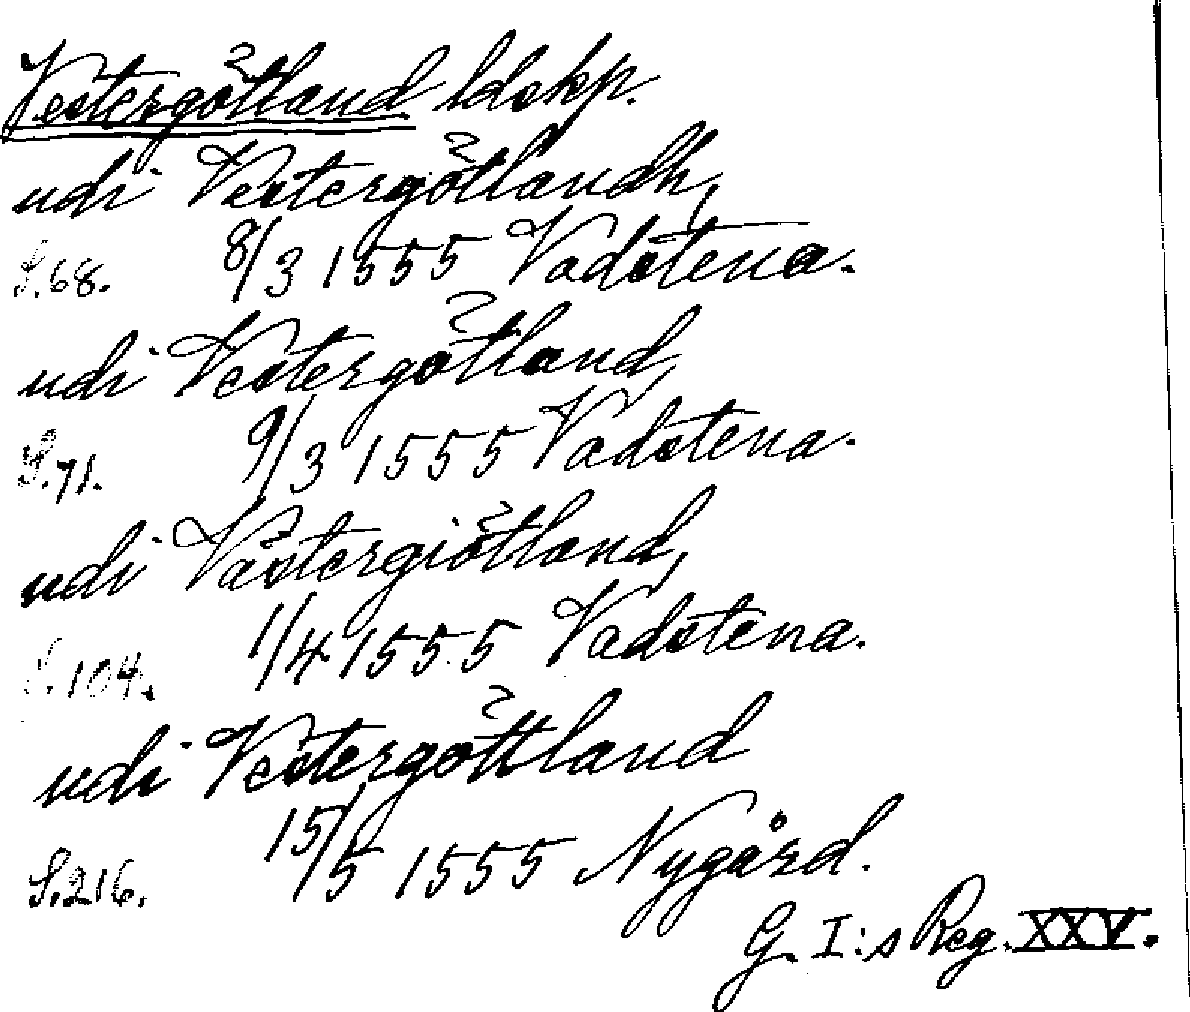 Vestergötland ldskp.
udi Vestergötlandh,
S. 68. 8/3 1555 Vadstena.
udi Vestergötland,
S. 71. 9/3 1555 Vadstena.
udi Västergiötland,
S. 104. 1/4 1555 Vadstena.
udi Vestergöttland
S. 216. 15/5 1555 Nygård.
G. I:s Reg. XXV.